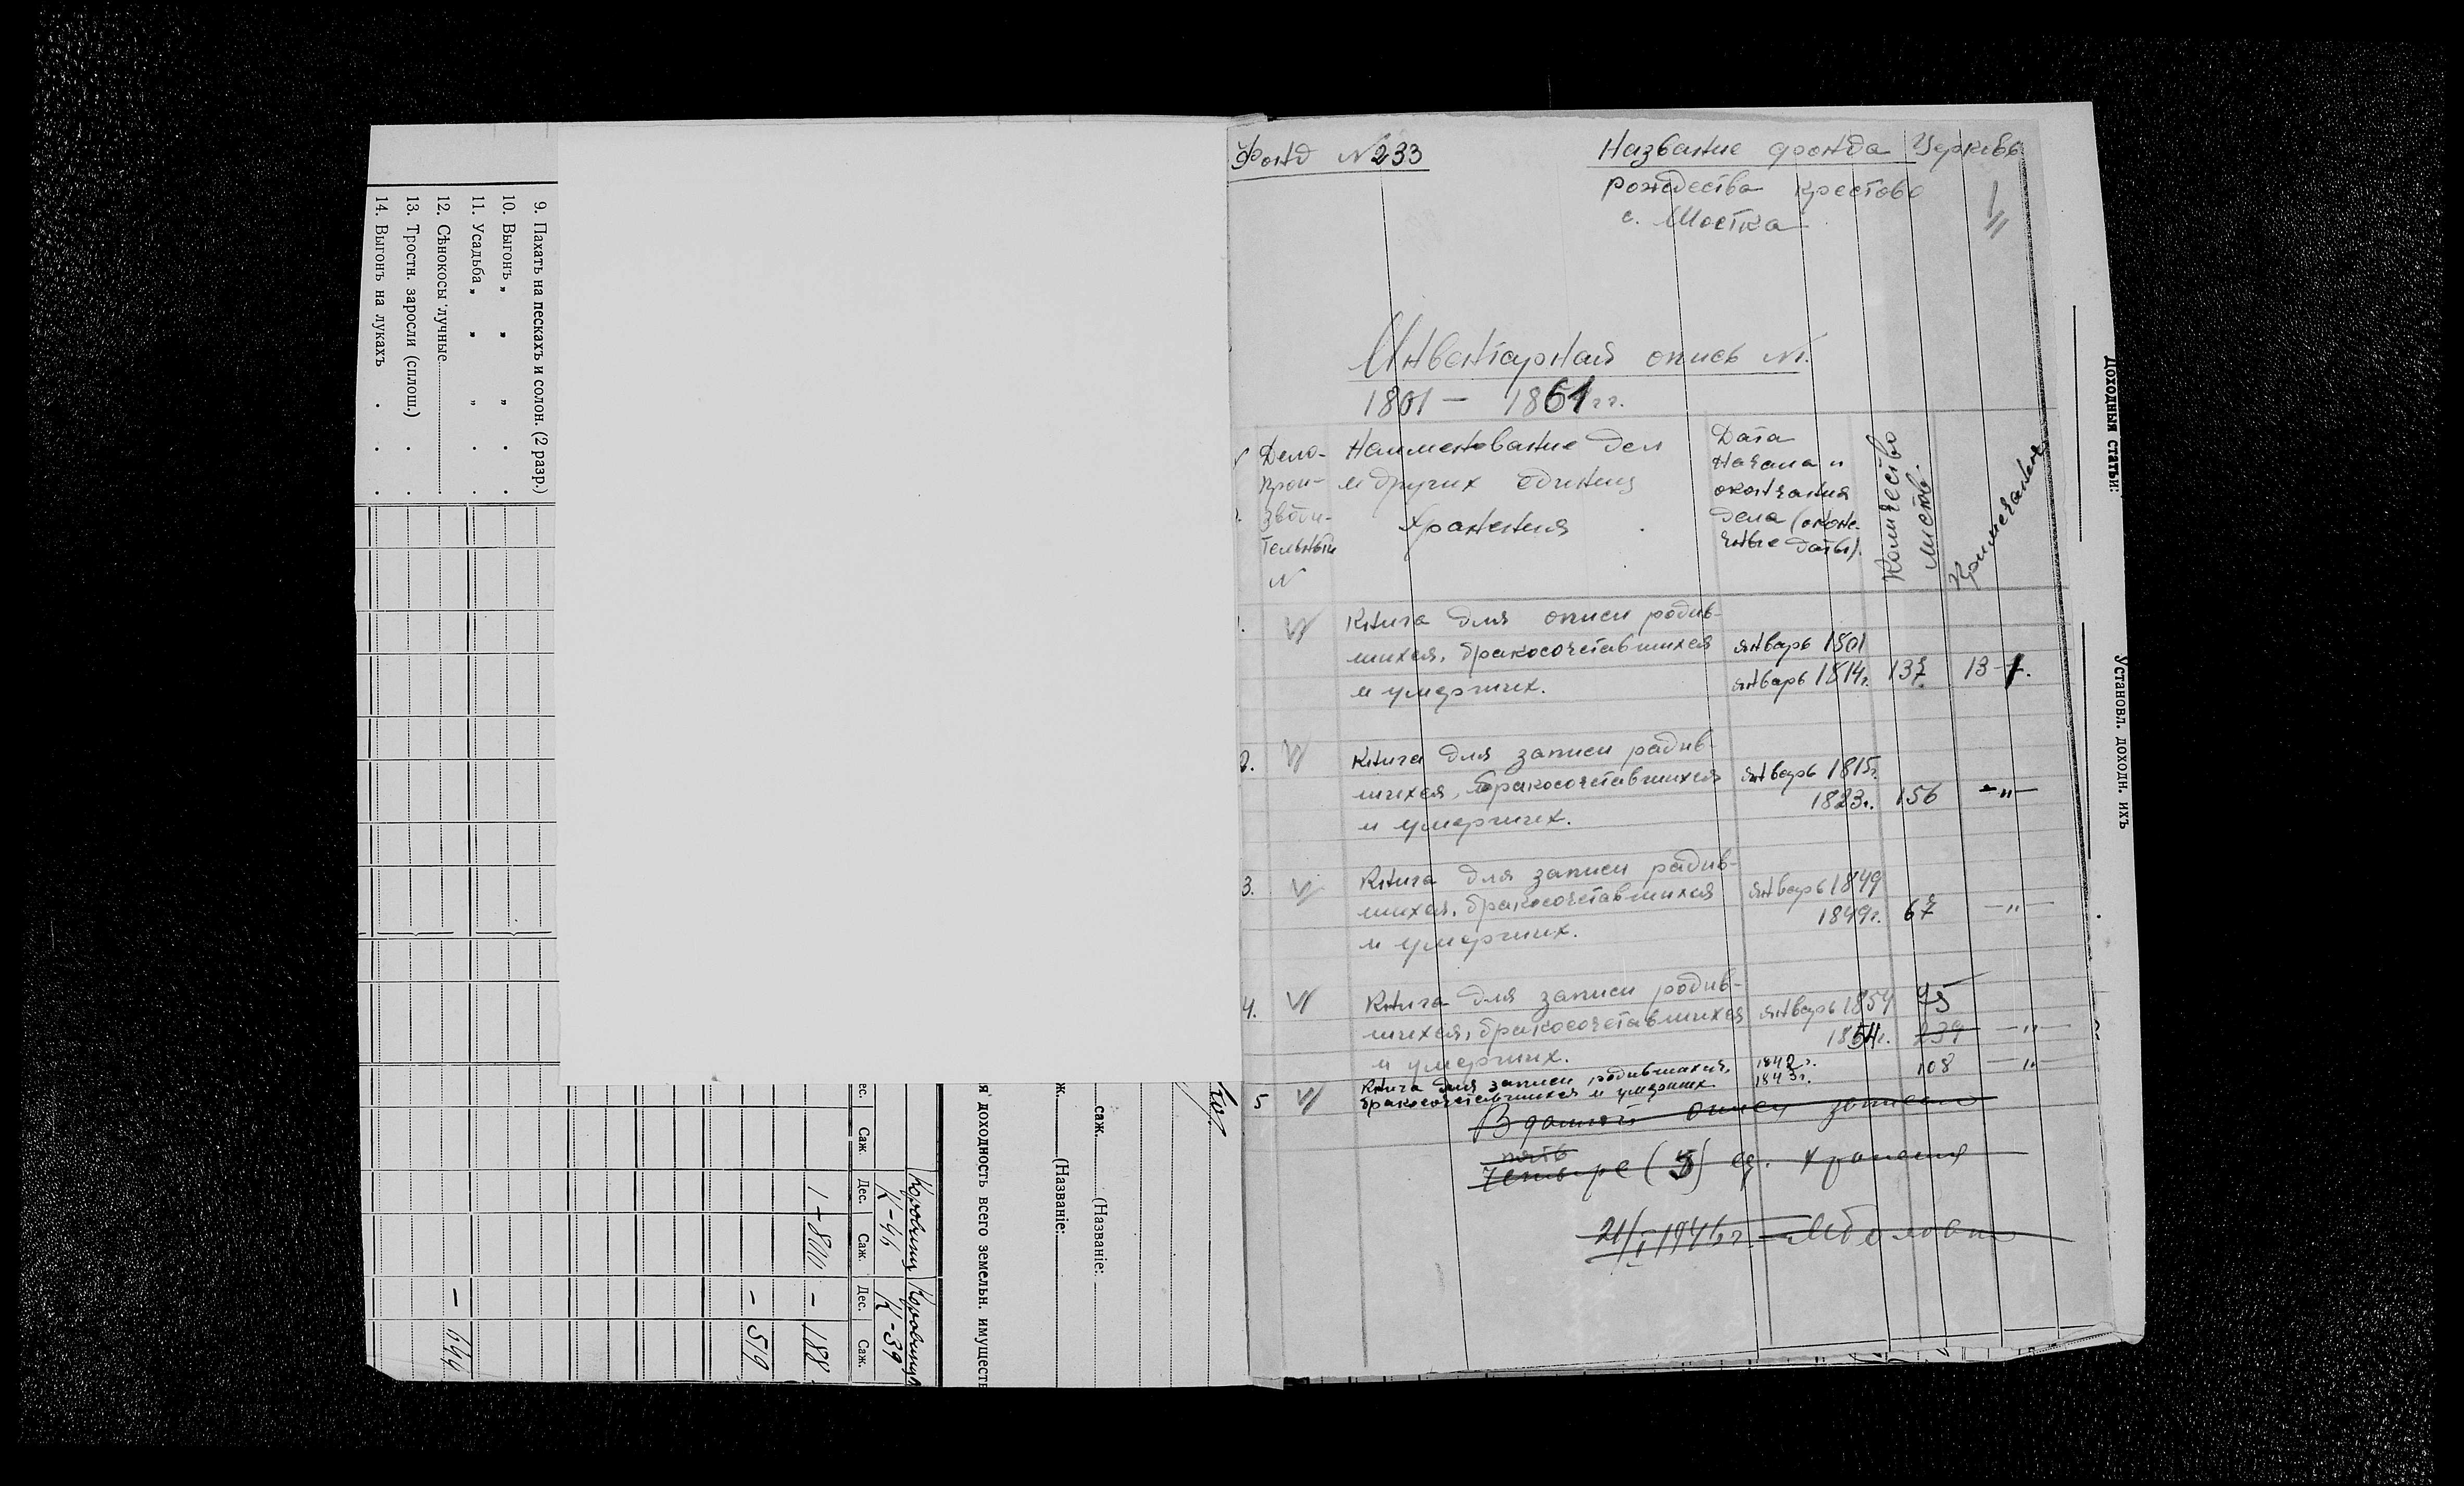 9. Пахать на пескахъ и солон. (2 разр.)
10. Выгонъ „ „ „ .
11. Усадьба „ „ „ .
12. Сѣнокосы лучные
13. Тростн. заросли (сплош.) .
14. Выгонъ на лукахъ . . .
Саж. Дес. Саж. Дес. Саж.
К-46 К-39
1 - 800 - 188
- 519
- 644
я доходность всего земельн. имуществ
ж. (Названіе:
саж. (Названіе:
Фонд № 233
Название фонда Церковь
рождества крестово
с. Шостка
1
Инвентарная опись №1.
1801 - 1861 гг.
Дело-
прои-
зводи-
тельный
№
Наименование дел
и других единиц
хранения
Дата
начала и
окончания
дела (оконе-
чные даты).
Количество
листов.
Примечание
1. Книга для описи родив-
шихся, бракосочетавшихся январь 1801
и умерших. январь 1814г. 137 13-1.
2. Книга для записи радив-
шихся, бракосочетавшихся январь 1815г.
и умерших. 1823г. 156 -„-
3. Книга для записи радив-
шихся, бракосочетавшихся январь 1849
и умерших. 1849г. 67 -„-
4. Книга для записи родив-
шихся, бракосочетавшихся январь 1854 95
и умерших. 1854г. 239 -„-
5 Книга для записи родившихся, 1842г. 108 -„
бракосочетавшихся и умерших 1843г.
В данной описи записано
пять
Четыре (5) ед. хранения
21/I 1946г.
Доходныя статьи:
Установл. доходн. ихъ